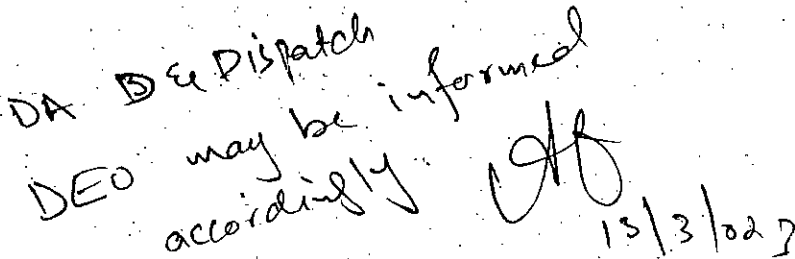 DA D & Dispatch
DEO may be informed
accordingly.
13/3/023